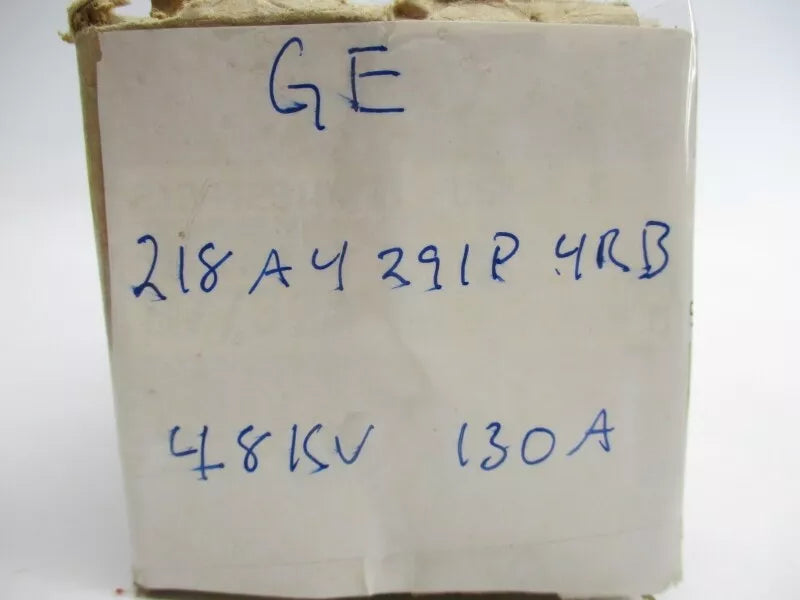 GE
218A4291P 4RB
4.8KV 130A